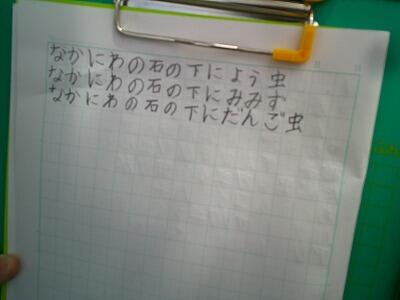 なかにわの石の下によう虫
なかにわの石の下にみみず
なかにわの石の下にだんご虫